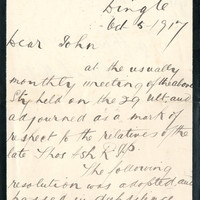 Dingle
Oct 5 1917
Dear John
at the usually
monthly meeting of the above
Sty held on the 29 ult and
adjourned as a mark of
respect to the relatives of the
late Thos Ash R.I.P
The following
resolution was adopted and
passed in